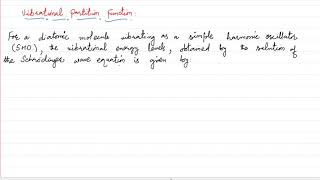 Vibrational Partition Function:
For a diatomic molecule vibrating as a simple harmonic oscillator
(SHO), the vibrational energy levels, obtained by the solution of
the Schrodinger wave equation is given by: